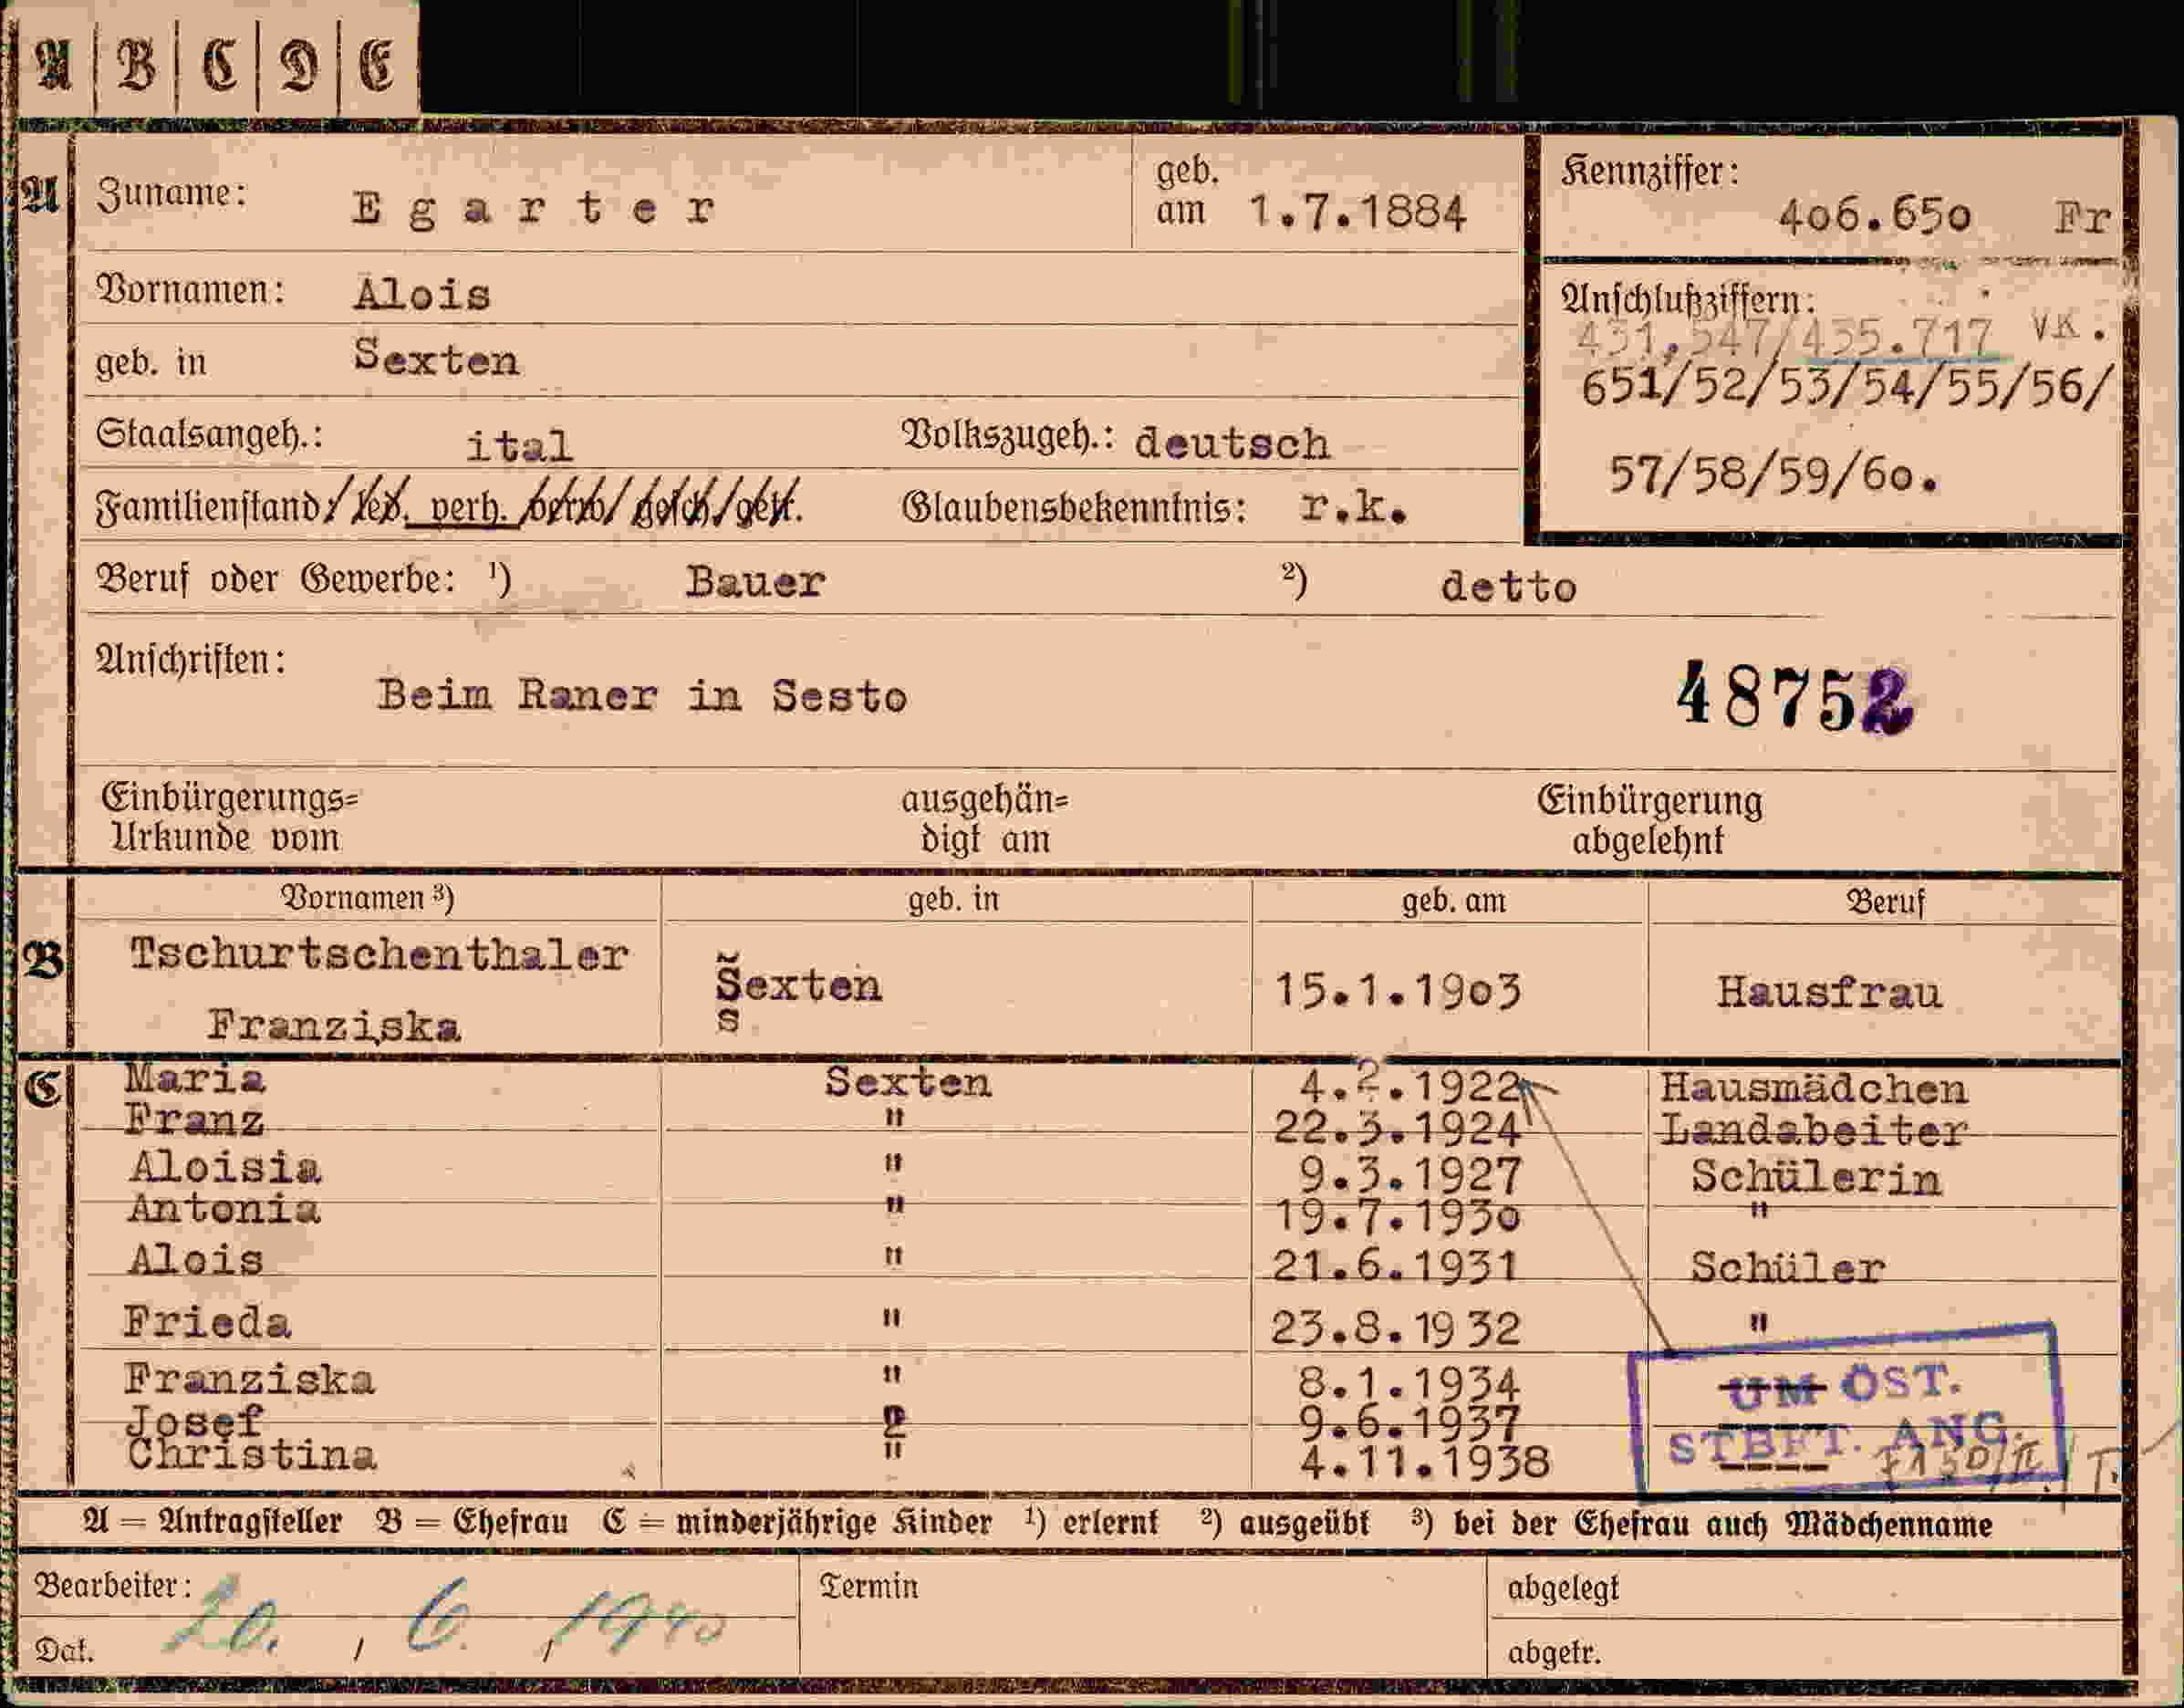 A B C D E
A Zuname: Egarter geb. am 1.7.1884 Kennziffer: 406.650 Fr
Vornamen: Alois Anschlußziffern:
geb. in Sexten 431,547/435.717 VK.
651/52/53/54/55/56/
Staatsangeh.: ital Volkszugeh.: deutsch
57/58/59/60.
Familienstand: led. verh. gesch. get. Glaubensbekenntnis: r.k.
Beruf oder Gewerbe: ¹) Bauer ²) detto
Anschriften:
Beim Raner in Sesto 48752
Einbürgerungs= ausgehän= Einbürgerung
Urkunde vom digt am abgelehnt
Vornamen ³) geb. in geb. am Beruf
B Tschurtschenthaler Sexten 15.1.1903 Hausfrau
Franziska s
C Maria Sexten 4.2.1922 Hausmädchen
Franz " 22.3.1924 Landabeiter
Aloisia " 9.3.1927 Schülerin
Antonia " 19.7.1930 "
Alois " 21.6.1931 Schüler
Frieda " 23.8.1932 "
Franziska " 8.1.1934
Josef " 9.6.1937
Christina " 4.11.1938
UM ÖST.
STBFT. ANG.
A = Antragsteller B = Ehefrau C = minderjährige Kinder ¹) erlernt ²) ausgeübt ³) bei der Ehefrau auch Mädchenname
Bearbeiter: Termin abgelegt
Dat. 20. / 6. / 1940 abgetr.